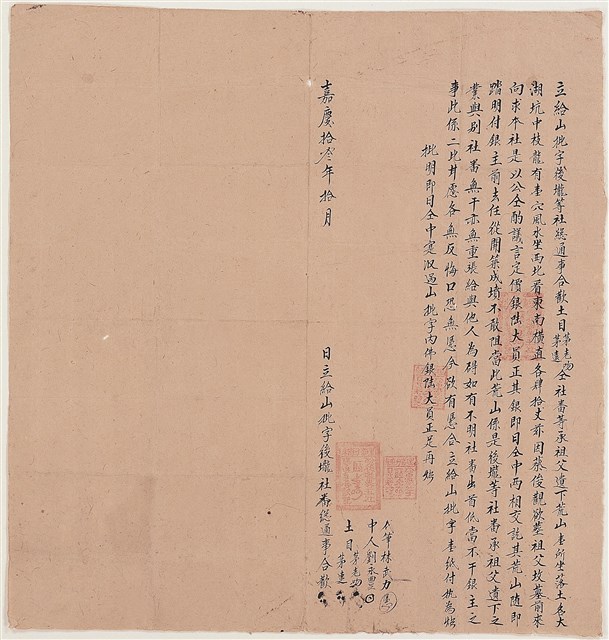 立給山批字後壠等社總通事合歡土目茅老吻茅連仝社番等承祖父遺下荒山壹所坐落土名大
湖坑中枝龍有壹穴風水坐西北看東南橫直各肆拾丈茲因蔡俊觀欲塟祖父坟墓前來
向求本社是以公仝酌議言定價銀陸大員正其銀即日仝中兩相交訖其荒山隨即
踏明付銀主前去任從開築成墳不敢阻當此荒山係是後壠等社番承祖父遺下之
業與别社番無干亦無重張給與他人為碍如有不明社番出首抵當不干銀主之
事此係二比甘愿各無反悔口恐無憑今欲有憑合立給山批字壹紙付執為炤
批明即日仝中寔收過山批字內佛銀陸大員正足再炤
代筆林武力
中人劉永豐
土目茅老吻
茅連
嘉慶拾叁年拾月 日立給山批字後壠社番總通事合歡